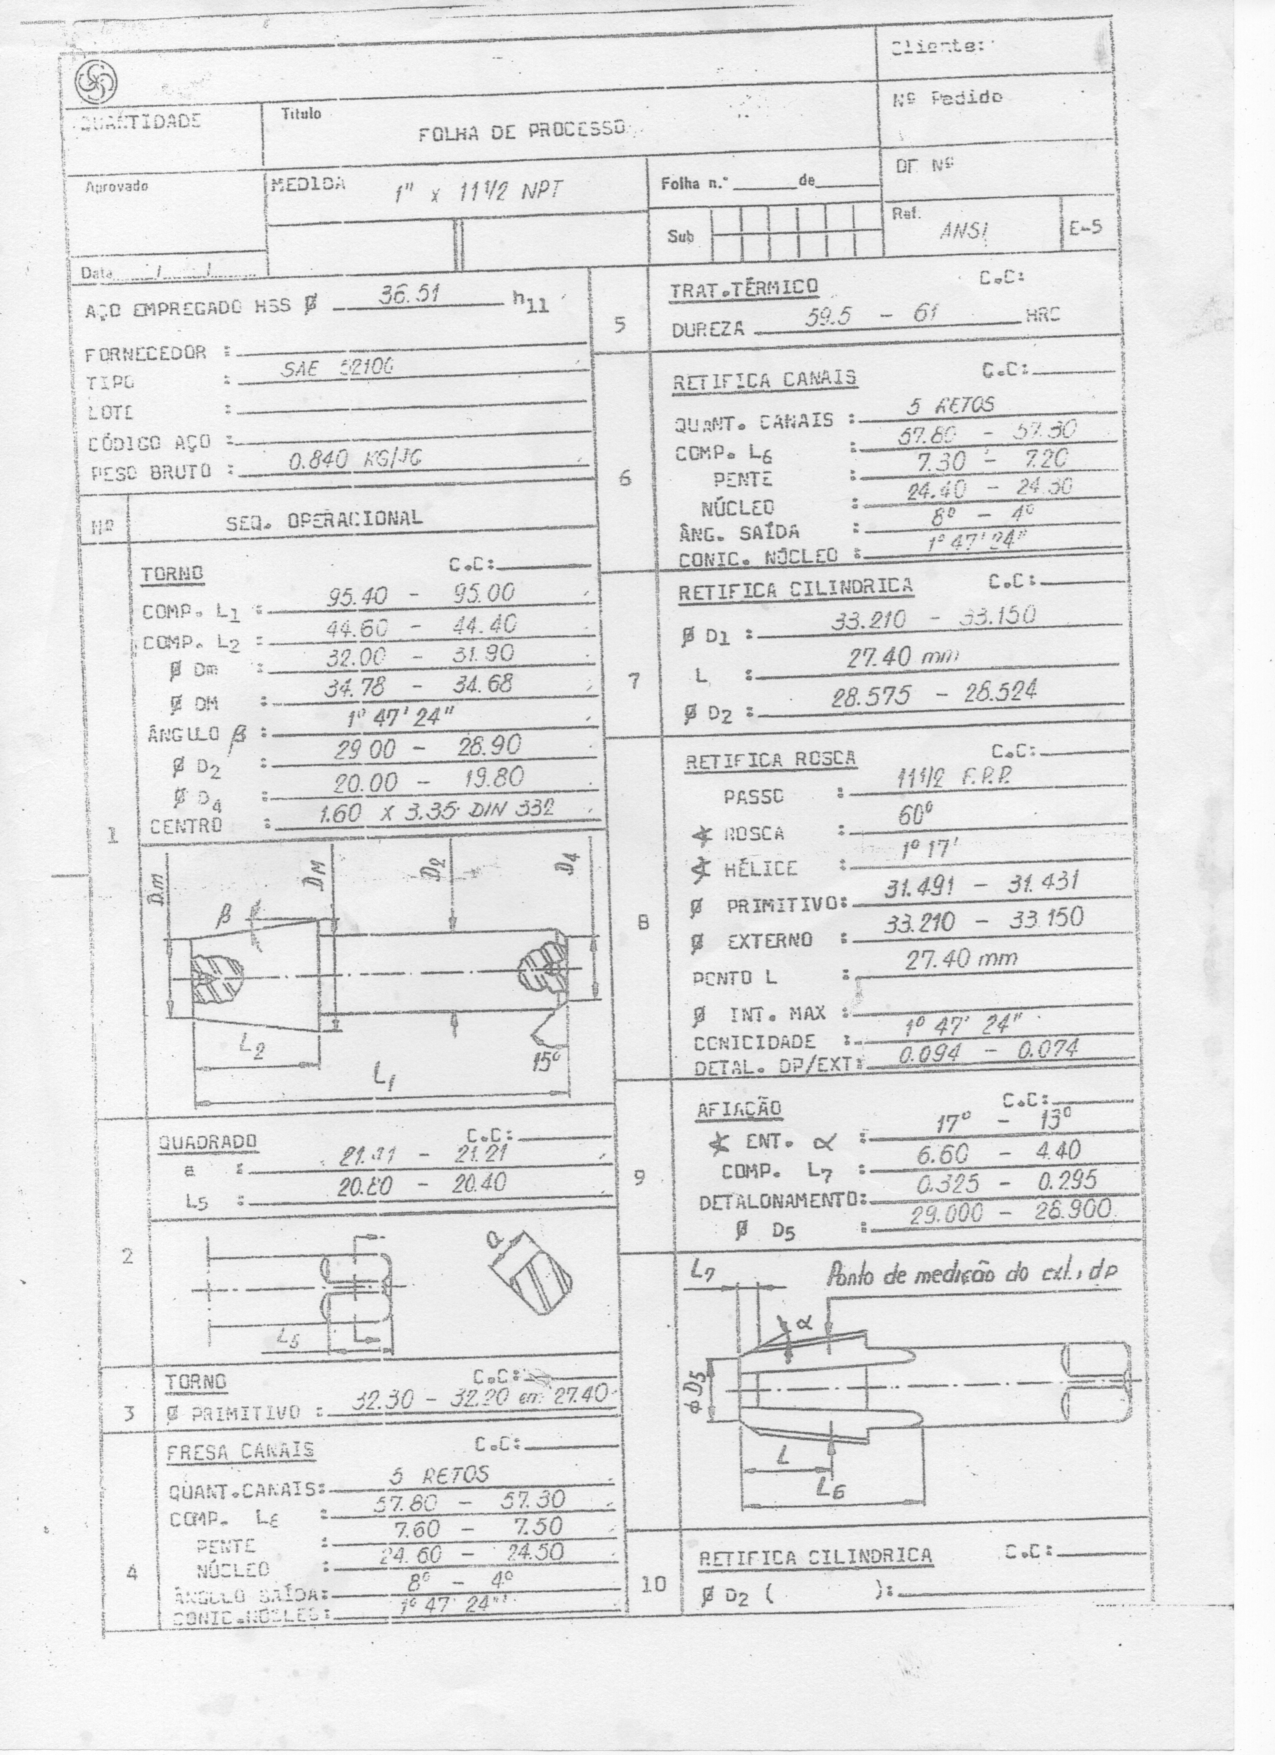 Cliente:
QUANTIDADE
Titulo
FOLHA DE PROCESSO
Nº Pedido
Aprovado
MEDIDA 1" x 11 1/2 NPT
Folha n.º ______ de ______
OF Nº
Sub
Ref. ANSI
E-5
Data / /
AÇO EMPREGADO HSS Ø 36.51 h11
FORNECEDOR :
TIPO : SAE 52100
LOTE :
CÓDIGO AÇO :
PESO BRUTO : 0.840 KG/
Nº SEQ. OPERACIONAL
1
TORNO C.C:
COMP. L1 : 95.40 - 95.00
COMP. L2 : 44.60 - 44.40
Ø Dm : 32.00 - 31.90
Ø DM : 34.78 - 34.68
ÂNGULO β : 1º 47' 24"
Ø D2 : 29.00 - 28.90
Ø D4 : 20.00 - 19.80
CENTRO : 1.60 X 3.35 DIN 332
Dm
β
DM
D2
D4
L2
15º
L1
2
QUADRADO C.C:
a : - 21.21
L5 : 20.80 - 20.40
a
L5
3
TORNO C.C:
Ø PRIMITIVO : 32.30 - 32.20 em 27.40
4
FRESA CANAIS C.C:
QUANT.CANAIS: 5 RETOS
COMP. L6 : 57.80 - 57.30
PENTE : 7.60 - 7.50
NÚCLEO : 24.60 - 24.50
ÂNGULO SAÍDA: 8º - 4º
CONIC.NÚCLEO: 1º 47' 24"
5
TRAT.TÉRMICO C.C:
DUREZA 59.5 - 61 HRC
6
RETIFICA CANAIS C.C:
QUANT. CANAIS : 5 RETOS
COMP. L6 : 57.80 - 57.30
PENTE : 7.30 - 7.20
NÚCLEO : 24.40 - 24.30
ÂNG. SAÍDA : 8º - 4º
CONIC. NÚCLEO : 1º 47' 24"
7
RETIFICA CILINDRICA C.C:
Ø D1 : 33.210 - 33.150
L : 27.40 mm
Ø D2 : 28.575 - 28.524
8
RETIFICA ROSCA C.C:
PASSO : 11 1/2 F.P.P.
∢ ROSCA : 60º
∢ HÉLICE : 1º 17'
Ø PRIMITIVO: 31.491 - 31.431
Ø EXTERNO : 33.210 - 33.150
PONTO L : 27.40 mm
Ø INT. MAX :
CONICIDADE : 1º 47' 24"
DETAL. DP/EXT: 0.094 - 0.074
9
AFIAÇÃO C.C:
∢ ENT. α : 17º - 13º
COMP. L7 : 6.60 - 4.40
DETALONAMENTO: 0.325 - 0.295
Ø D5 : 29.000 - 28.900
L7
Ponto de medição do ext., dp
α
Ø D5
L
L6
10
RETIFICA CILINDRICA C.C:
Ø D2 ( ):